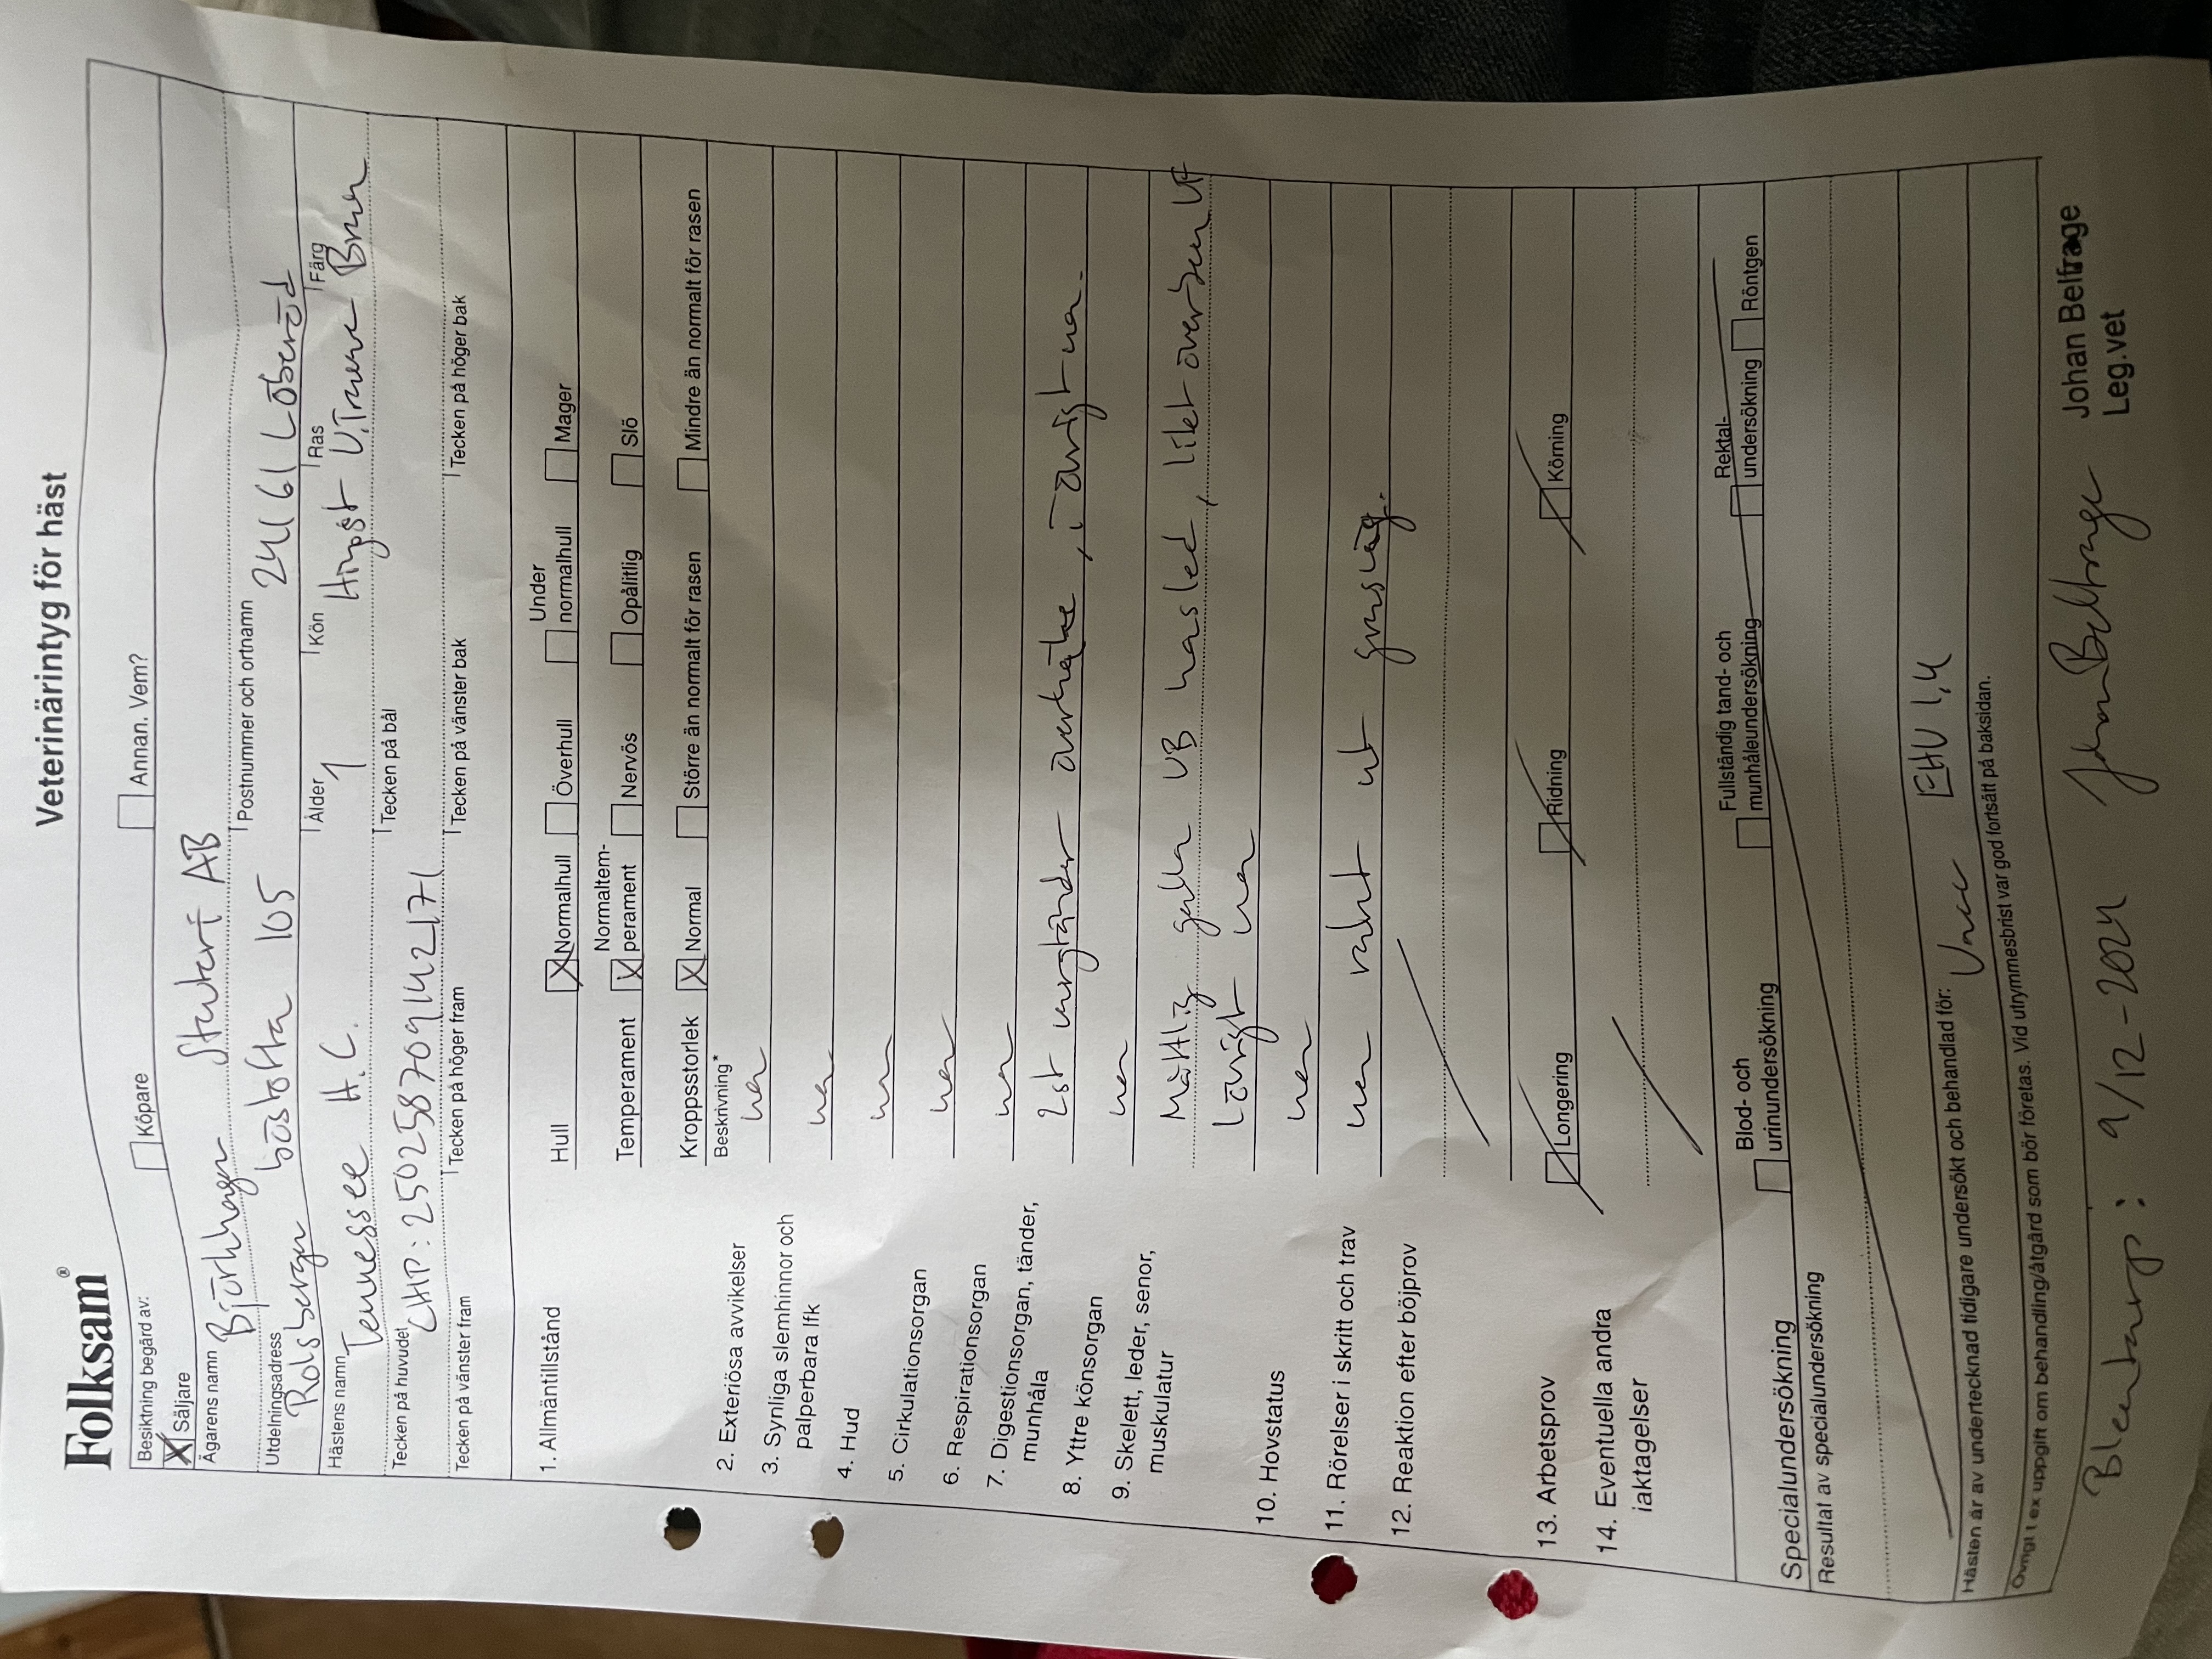 Folksam®
Veterinärintyg för häst
Besiktning begärd av:
X Säljare
Köpare
Annan. Vem?
Ägarens namn
Björkhagen Stuteri AB
Utdelningsadress
Postnummer och ortnamn
Rolsberga bösboa 105 24161 Löberöd
Hästens namn Ålder Kön Ras Färg
Tennessee H.C. 1 Hingst V.Trav Brun
Tecken på huvudet
Tecken på bål
CHP: 250258709142171
Tecken på vänster fram
Tecken på höger fram
Tecken på vänster bak
Tecken på höger bak
1. Allmäntillstånd
Hull X Normalhull Överhull Under normalhull Mager
Temperament X Normaltem-perament Nervös Opålitlig Slö
Kroppsstorlek X Normal Större än normalt för rasen Mindre än normalt för rasen
Beskrivning*
2. Exteriösa avvikelser ua
3. Synliga slemhinnor och palperbara lfk ua
4. Hud ua
5. Cirkulationsorgan ua
6. Respirationsorgan ua
7. Digestionsorgan, tänder, munhåla 2st vargtänder överkäke, i övrigt ua.
8. Yttre könsorgan ua
9. Skelett, leder, senor, muskulatur Måttlig galla VB hasled, litet överben VF
i övrigt ua
10. Hovstatus ua
11. Rörelser i skritt och trav ua rakt ut grusväg.
12. Reaktion efter böjprov
13. Arbetsprov Longering Ridning Körning
14. Eventuella andra iakttagelser
Specialundersökning
Blod- och urinundersökning
Fullständig tand- och munhåleundersökning
Rektal-undersökning
Röntgen
Resultat av specialundersökning
Hästen är av undertecknad tidigare undersökt och behandlad för: Vacc EHV 1,4
Övrigt t ex uppgift om behandling/åtgärd som bör företas. Vid utrymmesbrist var god fortsätt på baksidan.
Blentarp: 9/12-2024 Johan Belfrage
Johan Belfrage
Leg.vet